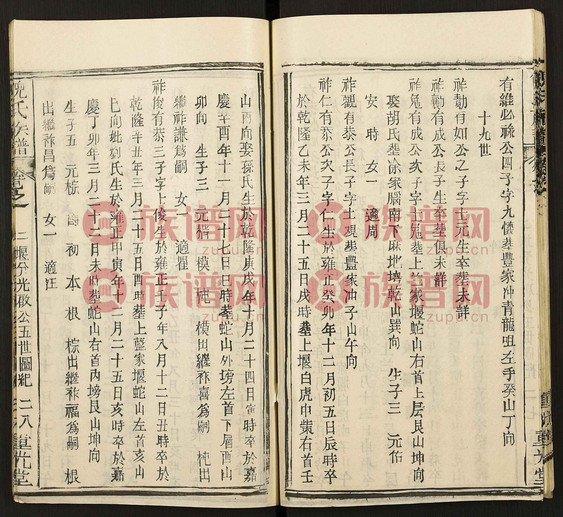 有維必祿公四子字九儐墓豐家冲青龍咀左手癸山丁向
十九世
祚勛有如公之子字士元生卒墓未詳
祚勳有成公次子長生卒墓俱未詳
祚冕有成公次子字士冕墓上塅家堰蛇山右首上層艮山坤向
娶胡氏墓徐家腦南下麻地塝乾山巽向 生子三 元佑
安 時 女一 適周
祚觀有恭公長子 字上現墓豐家冲子山午向
祚仁有恭公次子字仁生於雍正癸卯年十二月初五日辰時卒
於乾隆乙未年三月二十五日戌時墓上堰白虎中嘴右首壬
山丙向娶孫氏生於乾隆庚戌年十月二十四日寅時卒於嘉
慶辛酉年十二月二十七日時墓蛇山外塝左首下層酉山
卯向 生子三 元楷 模 杶 模出繼祚喜爲嗣 杶出
繼祚謙爲嗣 女一適瞿
祚俊有恭三子字上俊生於雍正壬子年八月十二日丑時卒於
乾隆辛丑年三月二十五日酉時墓上藍家堰蛇山左首亥山
巳向娶劉氏生於雍正甲寅年十二月二十五日亥時卒於嘉
慶丁卯年三月二十二日未時墓蛇山右首內塝艮山坤向
生子五 元棕 初 本 根 棕出繼祚福爲嗣 根
出繼祚昌爲嗣 女一 適汪
氏族譜
二堰分光啟公五世圖紀 二八 重光堂
族谱网
zupu.cn